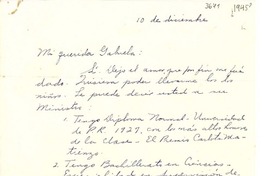 3671
[1945]
10 de diciembre
Mi querida Gabriela:
Sí. Llegó el amor, que por fin me fué
dado. Quisiera poder llevarme los
niños. Le puede decir usted a su
Ministro:
1. Tengo Diploma Normal - Universidad
de P.R. 1927, con los más altos honores
de la Clase - El Premio Carlota Ma-
tienzo.
2. Tengo Bachillerato en Ciencias -